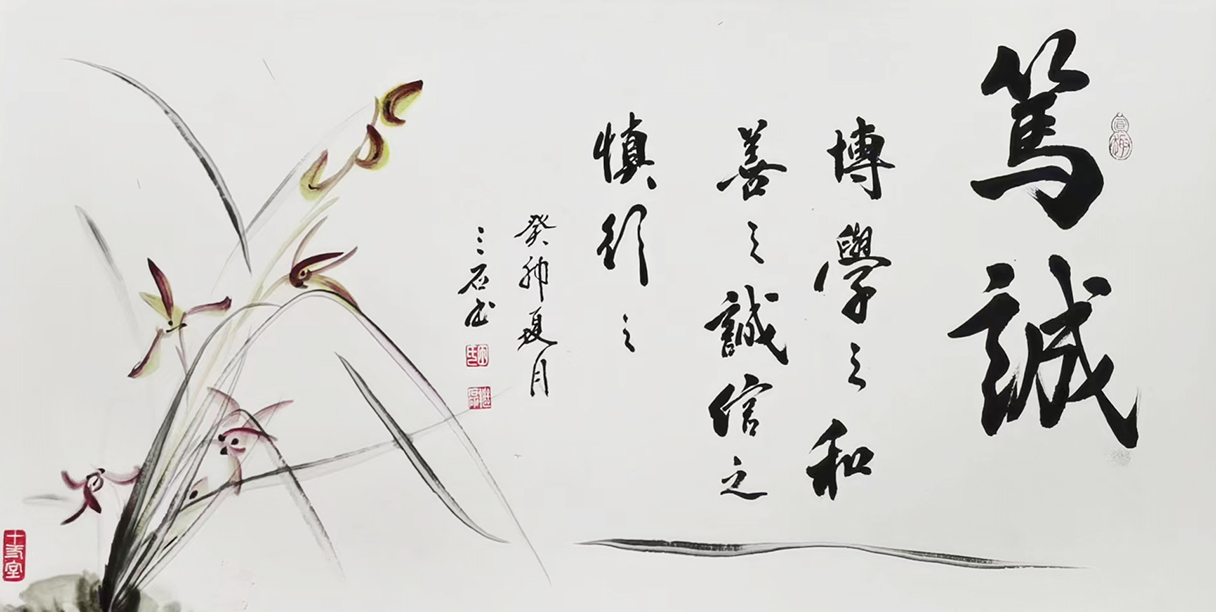 篤誠
博學之和
善之誠信之
慎行之
癸卯夏月
三石书